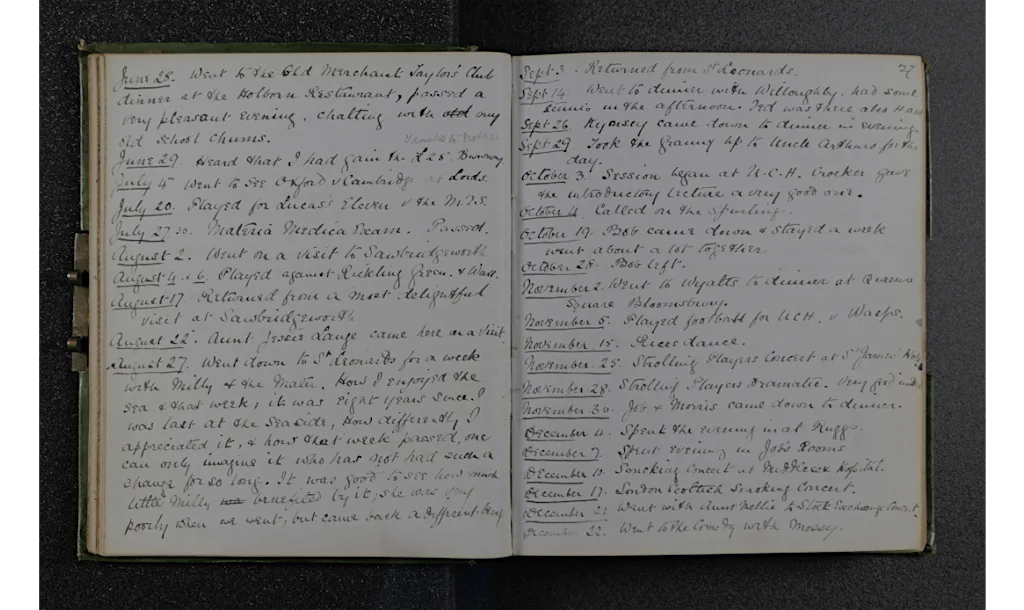 June 28. Went to the Old Merchant Taylor's Club
dinner at the Holborn Restaurant, passed a
very pleasant evening, chatting with old my
old school chums.
thanks to mother
June 29 Heard that I had gain the £25. Bursary
July 4 Went to see Oxford v Cambridge at Lords.
July 20. Played for Lucas's Eleven v the M.T.S.
July 27. 30. Materia Medica Exam. Passed.
August 2. Went on a visit to Sawbridgeworth
August 4 & 6. Played against Rickling Green. &
August 17. Returned from a most delightful
visit at Sawbridgeworth
August 22. Aunt Jessie Lange came here on a visit.
August 27. Went down to St Leonards for a week
with Milly & the Mater. How I enjoyed the
sea & that week; it was eight years since I
was last at the seaside, how differently I
appreciated it, & how that week passed, one
can only imagine it who has not had such a
change for so long. It was good to see how much
little Milly benefited by it; she was very
poorly when we went, but came back a different being
27
Sept 3. Returned from St Leonards.
Sept 14. Went to dinner with Willoughby. had some
tennis in the afternoon. Ted was there also
Sept 26. came down to dinner in evening.
Sept 29 Took the Granny up to Uncle Arthurs for the
day.
October 3. Session began at U.C.H. Crocker gave
the introductory lecture a very good one.
October 4. Called on the Spurlings.
October 19. Bob came down & stayed a week
went about a lot together
October 28. Bob left.
November 2. Went to Wyatts to dinner at Queens
Square Bloomsbury.
November 5. Played football for UCH. v Wasps.
November 15. Rices dance.
November 25. Strolling Players Concert at St James' Hall
November 28. Strolling Players Dramatic. Very good
November 30. Job & Morris came down to dinner.
December 4. Spent the evening at Ruggs.
December 7. Spent evening in Job's Rooms
December 10. Smoking Concert at Middlesex Hospital.
December 17. London Scottish Smoking Concert.
December 21 Went with Aunt Nellie to Stock Exchange Concert.
December 22. Went to the Comedy with Mossy.